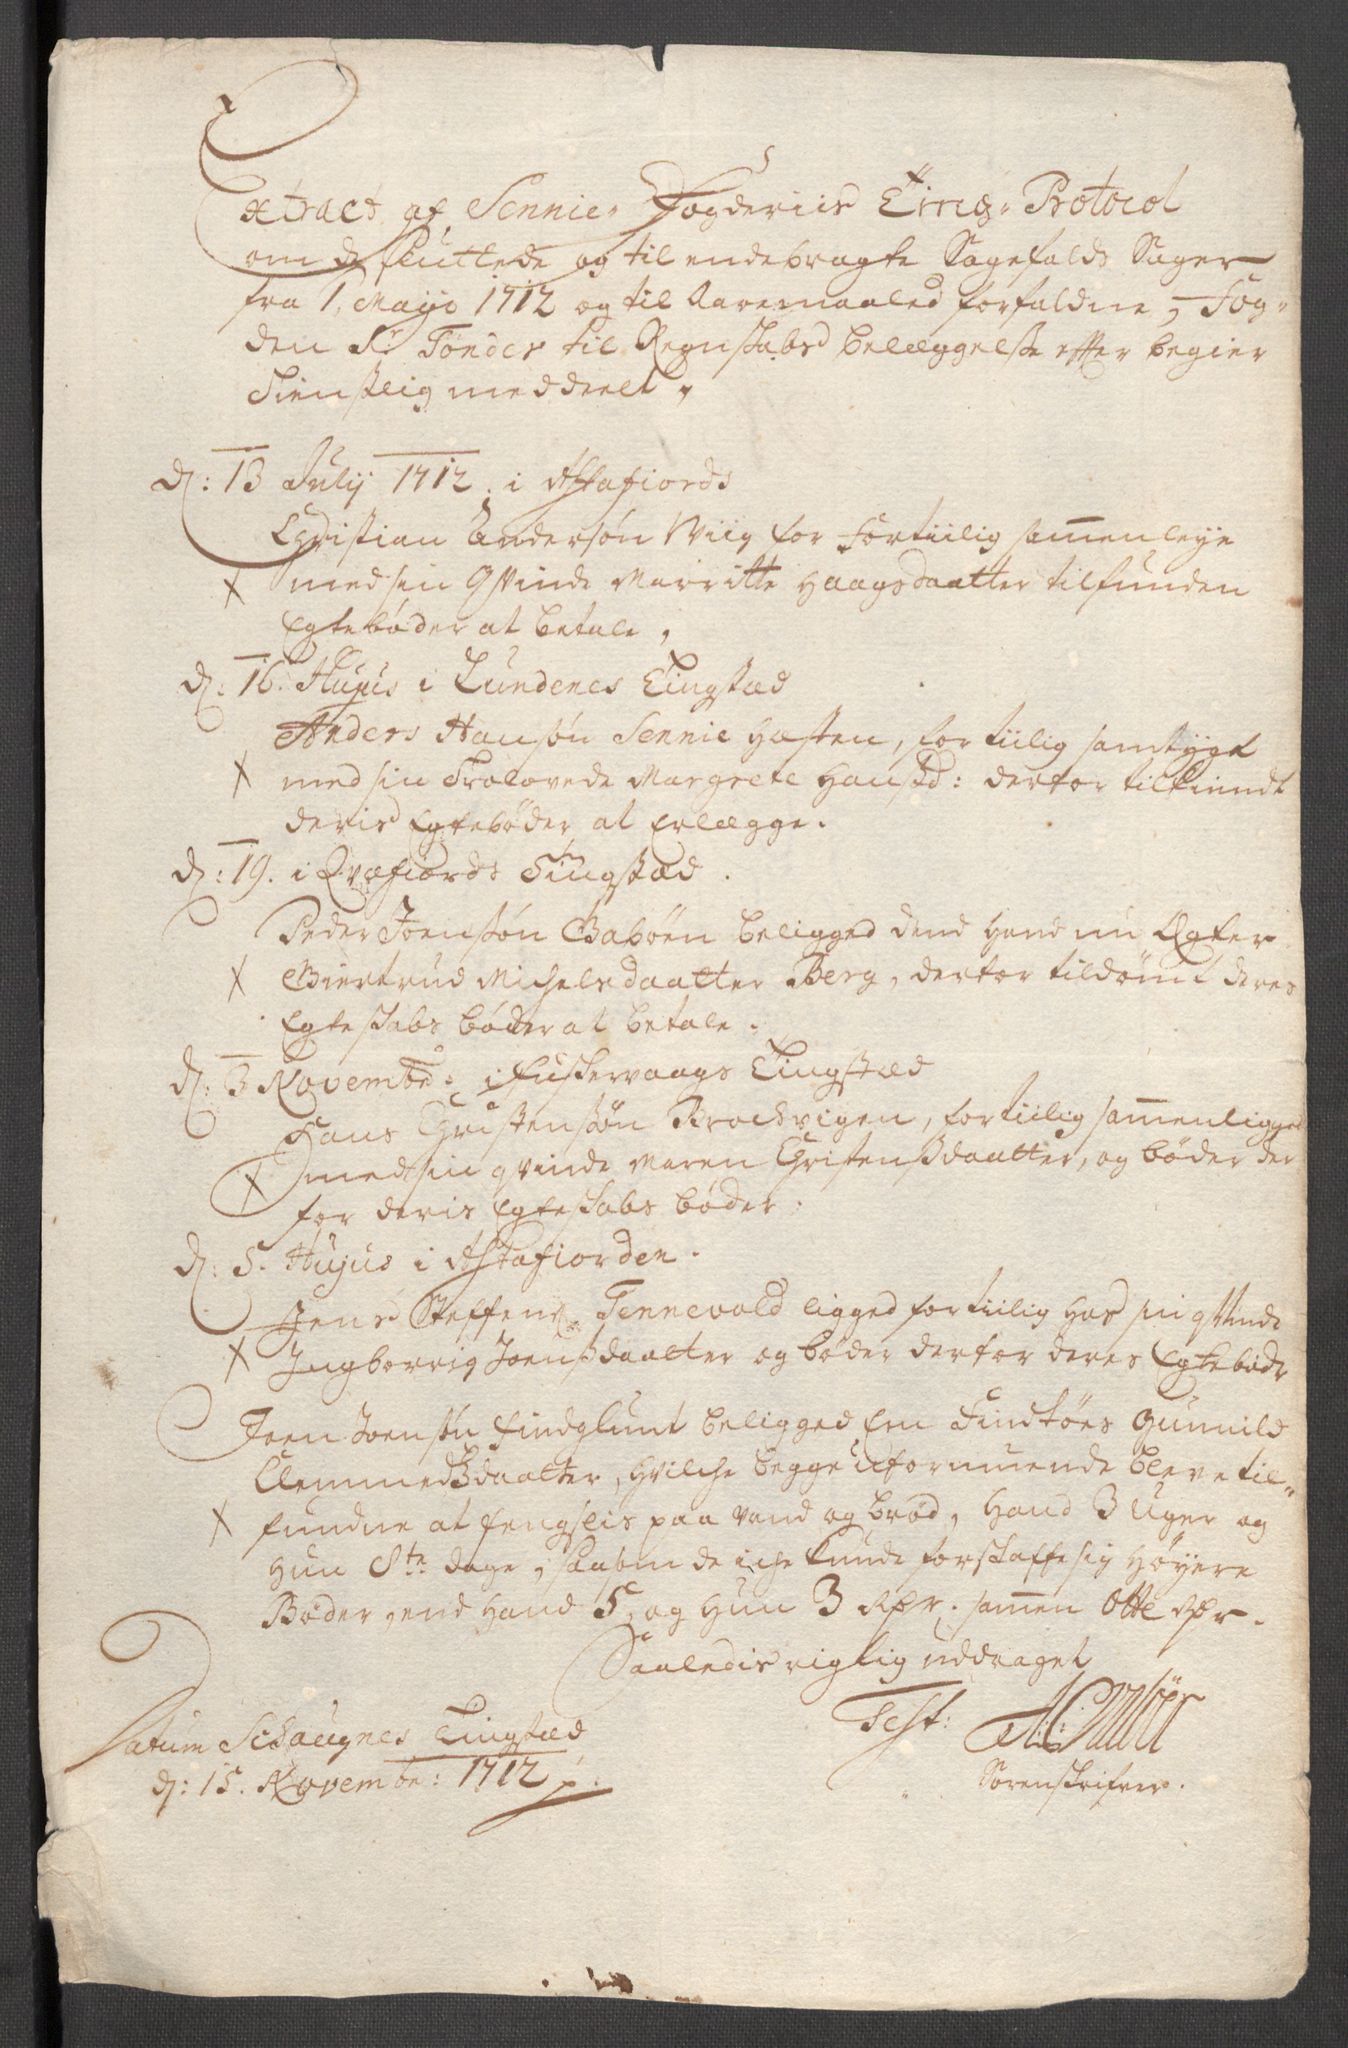 Extract af Sennie Fogderiis Tings Protocol
om de sluttede og til endebragte Sagefalds Sager
fra 1. Mayo 1712 og til Aaremaaled forfaldne, Fog-
den Sr. Tønder til Regnskabs belæggelse effter begier
Tienstlig meddeelt,
d: 13 Julij 1712. i Astafiords
Christian Andersøn Wiig for fortiilig sammenleye
X med sin Qvinde Marritte Haagsdaatter tilfunden
Egtebøder at betale,
d: 16. Hujus i Lundenes Tingstæd
Anders Hansøn Sennie Hesten, for tiilig samtygt
X med sin Trolovede Margrete Hansd: derfor tilkiendt
deris Egtebøder at Erlægge.
d: 19. i Qvæfiords Tingstæd.
Peder Joenssøn Gabøen beligged dend Hand nu Ægter
X Giertrud Michelsdaatter Berg, derfor tildømt deres
Egteskabs bøder at betale.
d: 3 Novembr: i Fuskevaags Tingstæd
Hans Christenssøn Brochvigen, for tiilig sammenligget
X med sin qvinde Maren Christensdaatter, og bøder der
for deris Egteskabs bøder:
d: 5. Hujus i Astafiorden.
Jens Steffens. Tennevold ligged for tiilig hos sin qvinde
X Ingborrig Joensdaatter og bøder derfor deres Egtebøder
Joen Joensøn Findglunt beligged En Findtøes Gunnild
Clemmedsdaatter, hvilche begge uformuende bleve til-
X fundne at fengslis paa vand og brød, Hand 3 Uger og
Hun 8te dage, saasom de iche kunde forskaffe sig høyere
Bøder, end Hand 5, og Hun 3 Rdr. sammen Otte Rdr.
Saaledis rigtig uddraget
Test:
Datum Schaugnes Tingstæd
d: 15. Novembr: 1712
Sorenskrifver.